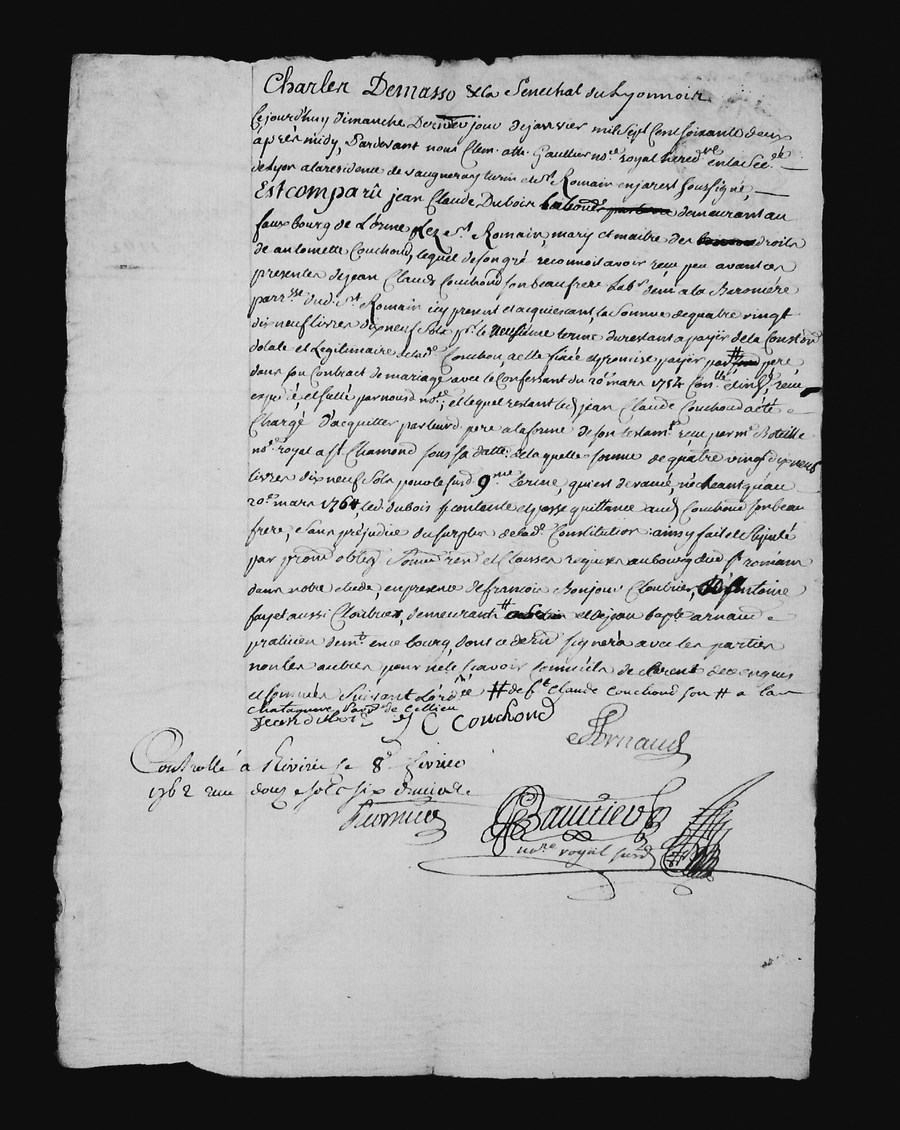 Charles Demasso &c la Senechal du Lyonnois
Cejourdhuy dimanche Dernier jour de janvier mil sept Cent soixante deux
après midy, Pardevant nous Clem. ath. Gaultier no.re royal hered.re en la Sée
de Lyon a la residence de vaugneray turin et St. Romain en jarest soussigné,
Est comparû jean Claude Dubois demeurant au
fauxbourg de Lorme Lez St. Romain, mary et maitre des droits
de antoinette Couchoud, lequel de son gré reconnoit avoir reçu peu avant ces
presentes de jean Claude Couchoud son beau frere lab.r dem.t a la Baroniére
parr.sse dud. St. Romain icy present et acquiescant, la Somme de quatre vingt
dix neuf livres dix neuf Sols p.r le neufvieme terme du restant a payer de la Const.on
dotale et Legitimaire de lad. Couchou, a elle fixée et promise payer par # pere
dans son Contract de mariage avec le Confessant du 20.e mars 1754 Con.llé et ins.é reçu
expedié, et sellé par nousd. no.re, et lequel restant led. jean Claude Couchoud a été
Chargé d'acquitter par leurd. pere a la forme de son testam.t reçu par m.e Bateille
no.re royal a St. Chamond sous sa datte; de laquelle somme de quatre vingt dix neuf
livres dix neuf Sols pour le susd. 9.me terme, qui est d'avance, n'echeant qu'au
20.e mars 1764, led. dubois se contente et passe quittance aud. Couchoud son beau
frere, Sans prejudice du surplus de lad. Constitution ainsy fait et Stipulé
par prom. oblig. soum. ren. et Clauses requises au bourg dud. St. romain
dans notre etude, en presence de francois Bonjour Cloutrier, antoine
fayet aussi Cloutrier, demeurants # et de jean bap.te arnaud
praticien dem.t en ce bourg, dont ce dern.r signera avec les parties
non les autres pour ne le scavoir comme ils ont declaré de ce enquis
et sommés Suivant L'ord.ce # de f.t Claude couchoud son # a la
Chatagnere parr. de Cellieu
jean dubois J C Couchoud
Arnaud
Controllé à Rivirie le 8.e fevrier
1762 reçu douze sols six deniers
Gaultier
no.re royal susd.